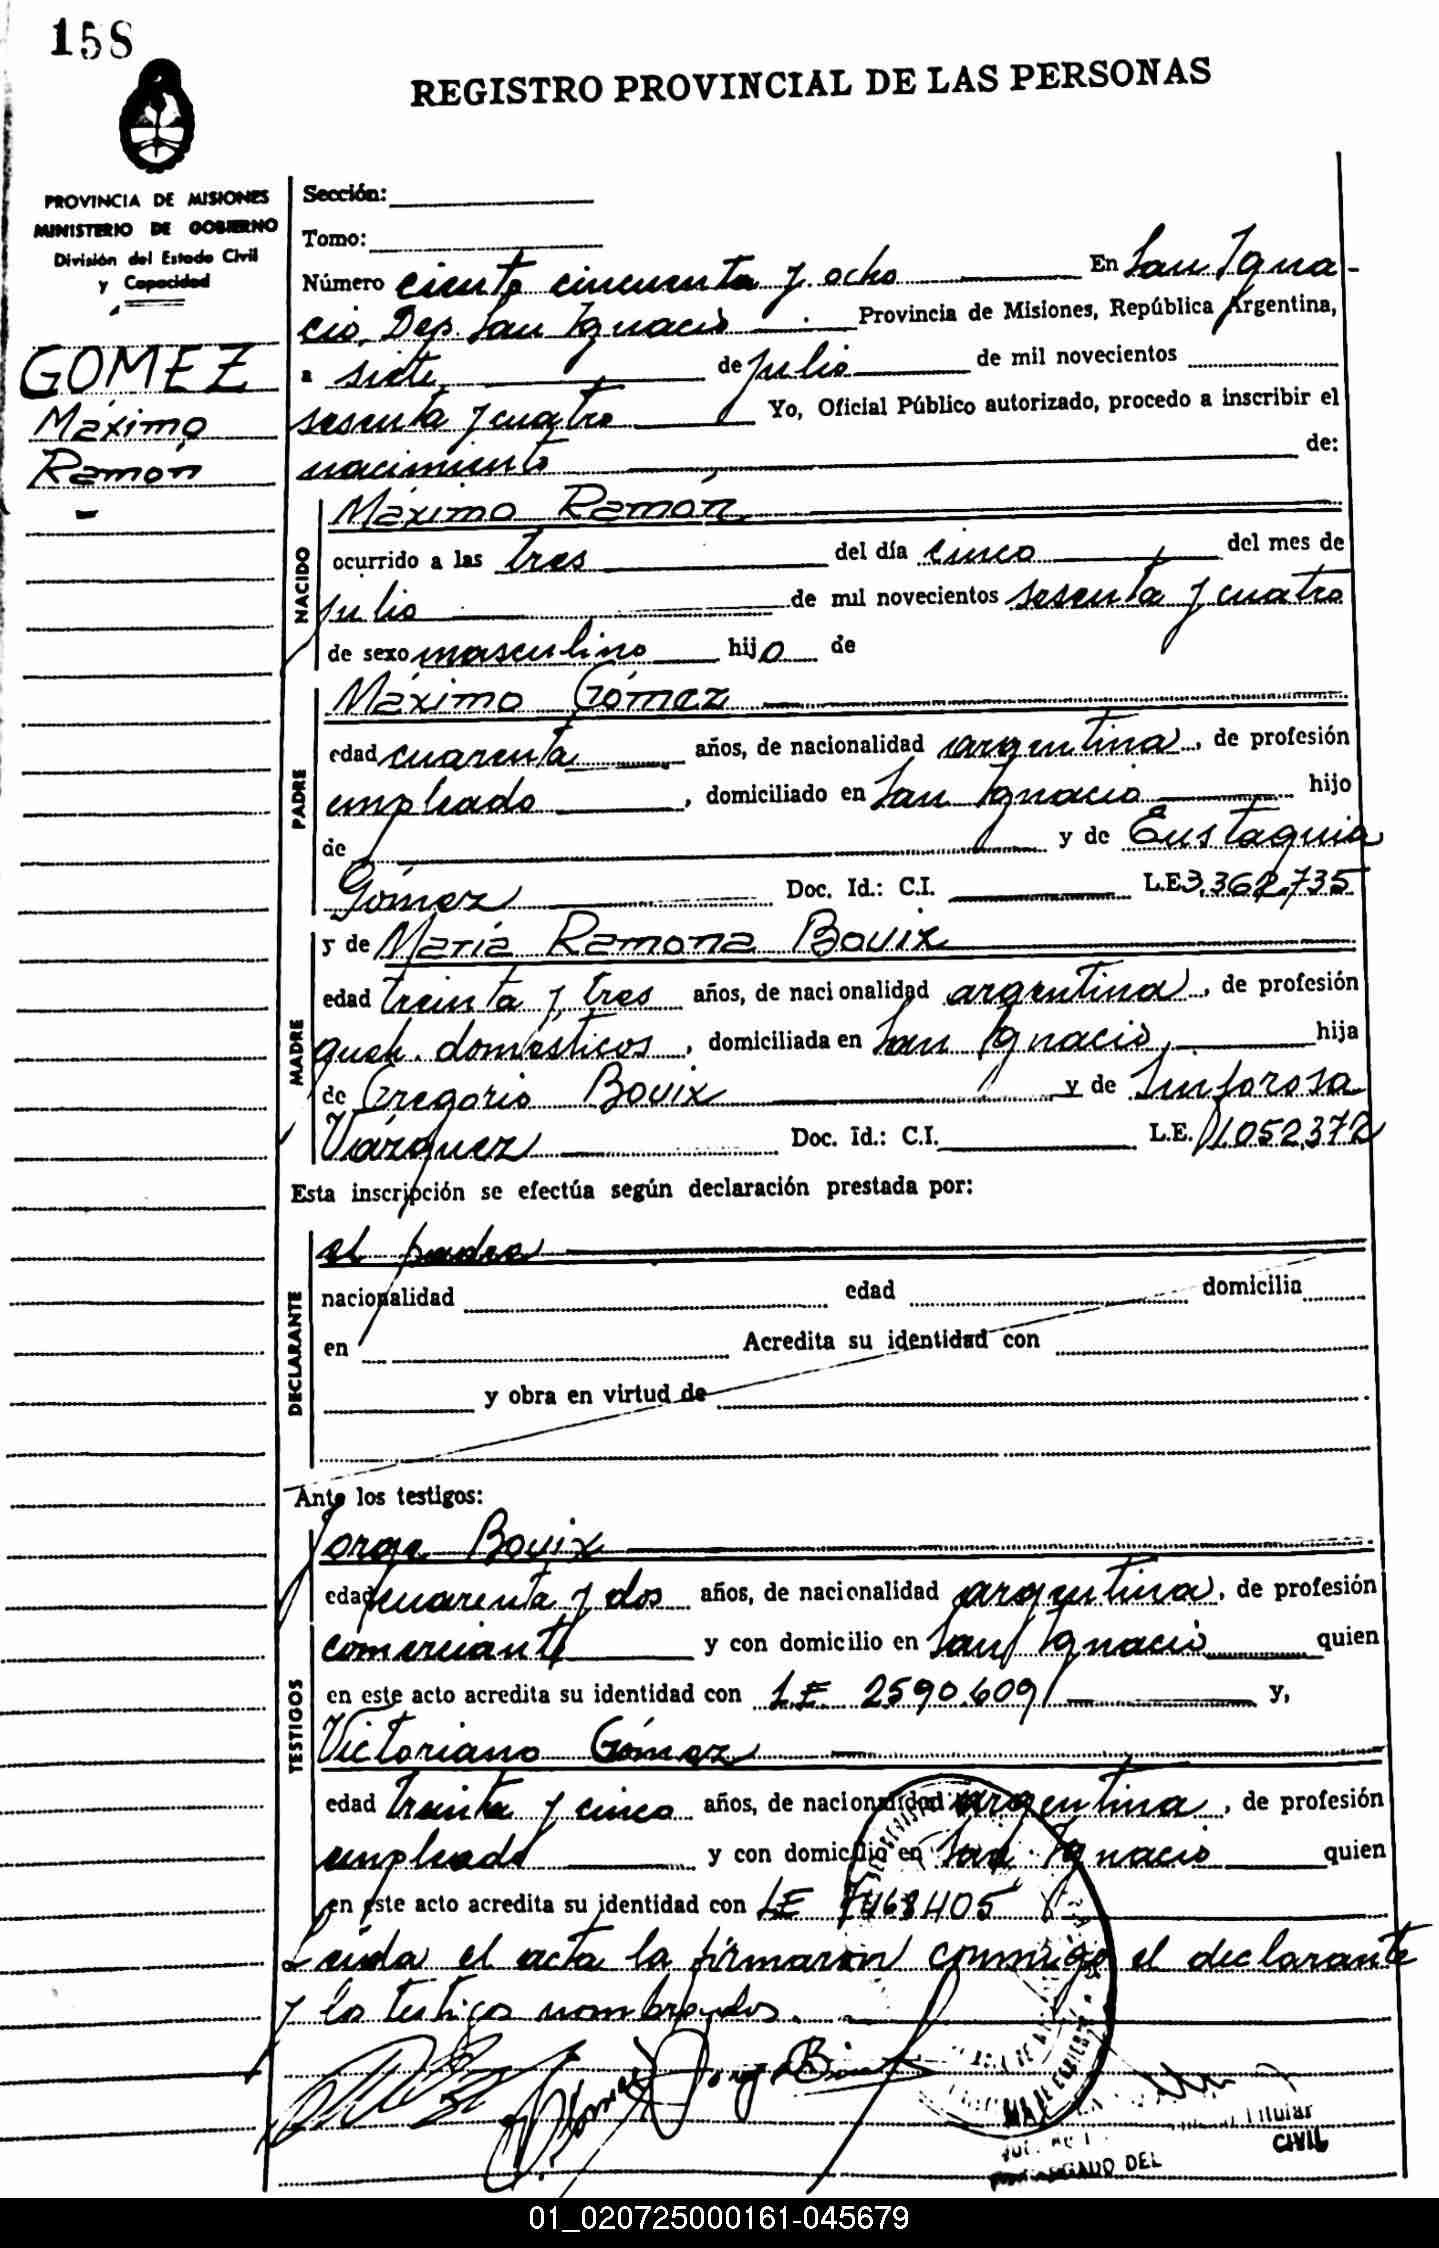 158
REGISTRO PROVINCIAL DE LAS PERSONAS
PROVINCIA DE MISIONES
MINISTERIO DE GOBIERNO
División del Estado Civil
y Capacidad
GOMEZ
Máximo
Ramón
Sección:
Tomo:
Número ciento cincuenta y ocho En San Igna-
cio, Dep. San Ignacio Provincia de Misiones, República Argentina,
a siete de julio de mil novecientos
sesenta y cuatro Yo, Oficial Público autorizado, procedo a inscribir el
nacimiento de:
NACIDO
Máximo Ramón
ocurrido a las tres del día cinco del mes de
julio de mil novecientos sesenta y cuatro
de sexo masculino hijo de
PADRE
Máximo Gómez
edad cuarenta años, de nacionalidad argentina, de profesión
empleado, domiciliado en San Ignacio hijo
de y de Eustaquia
Gómez Doc. Id.: C.I. L.E. 3.362.735
MADRE
y de María Ramona Bouix
edad treinta y tres años, de nacionalidad argentina, de profesión
queh. domésticos, domiciliada en San Ignacio, hija
de Gregorio Bouix y de Sinforosa
Vázquez Doc. Id.: C.I. L.E. 1.052.372
Esta inscripción se efectúa según declaración prestada por:
DECLARANTE
el padre
nacionalidad edad domicilia
en Acredita su identidad con
y obra en virtud de
Ante los testigos:
TESTIGOS
Jorge Bouix
edad cuarenta y dos años, de nacionalidad argentina, de profesión
comerciante y con domicilio en San Ignacio quien
en este acto acredita su identidad con L.E. 2590.609 y,
Victoriano Gómez
edad treinta y cinco años, de nacionalidad argentina, de profesión
empleado y con domicilio en San Ignacio quien
en este acto acredita su identidad con LE 7468405
Leída el acta la firmaron conmigo el declarante
y los testigos nombrados.
Titular
CIVIL
DEL
01_020725000161-045679